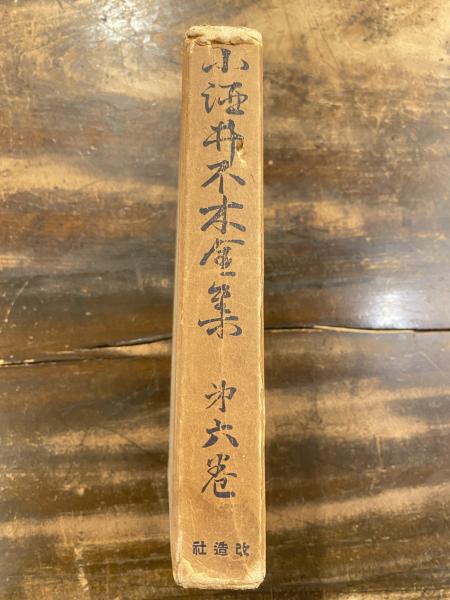 小酒井不木全集 第六巻
改造社